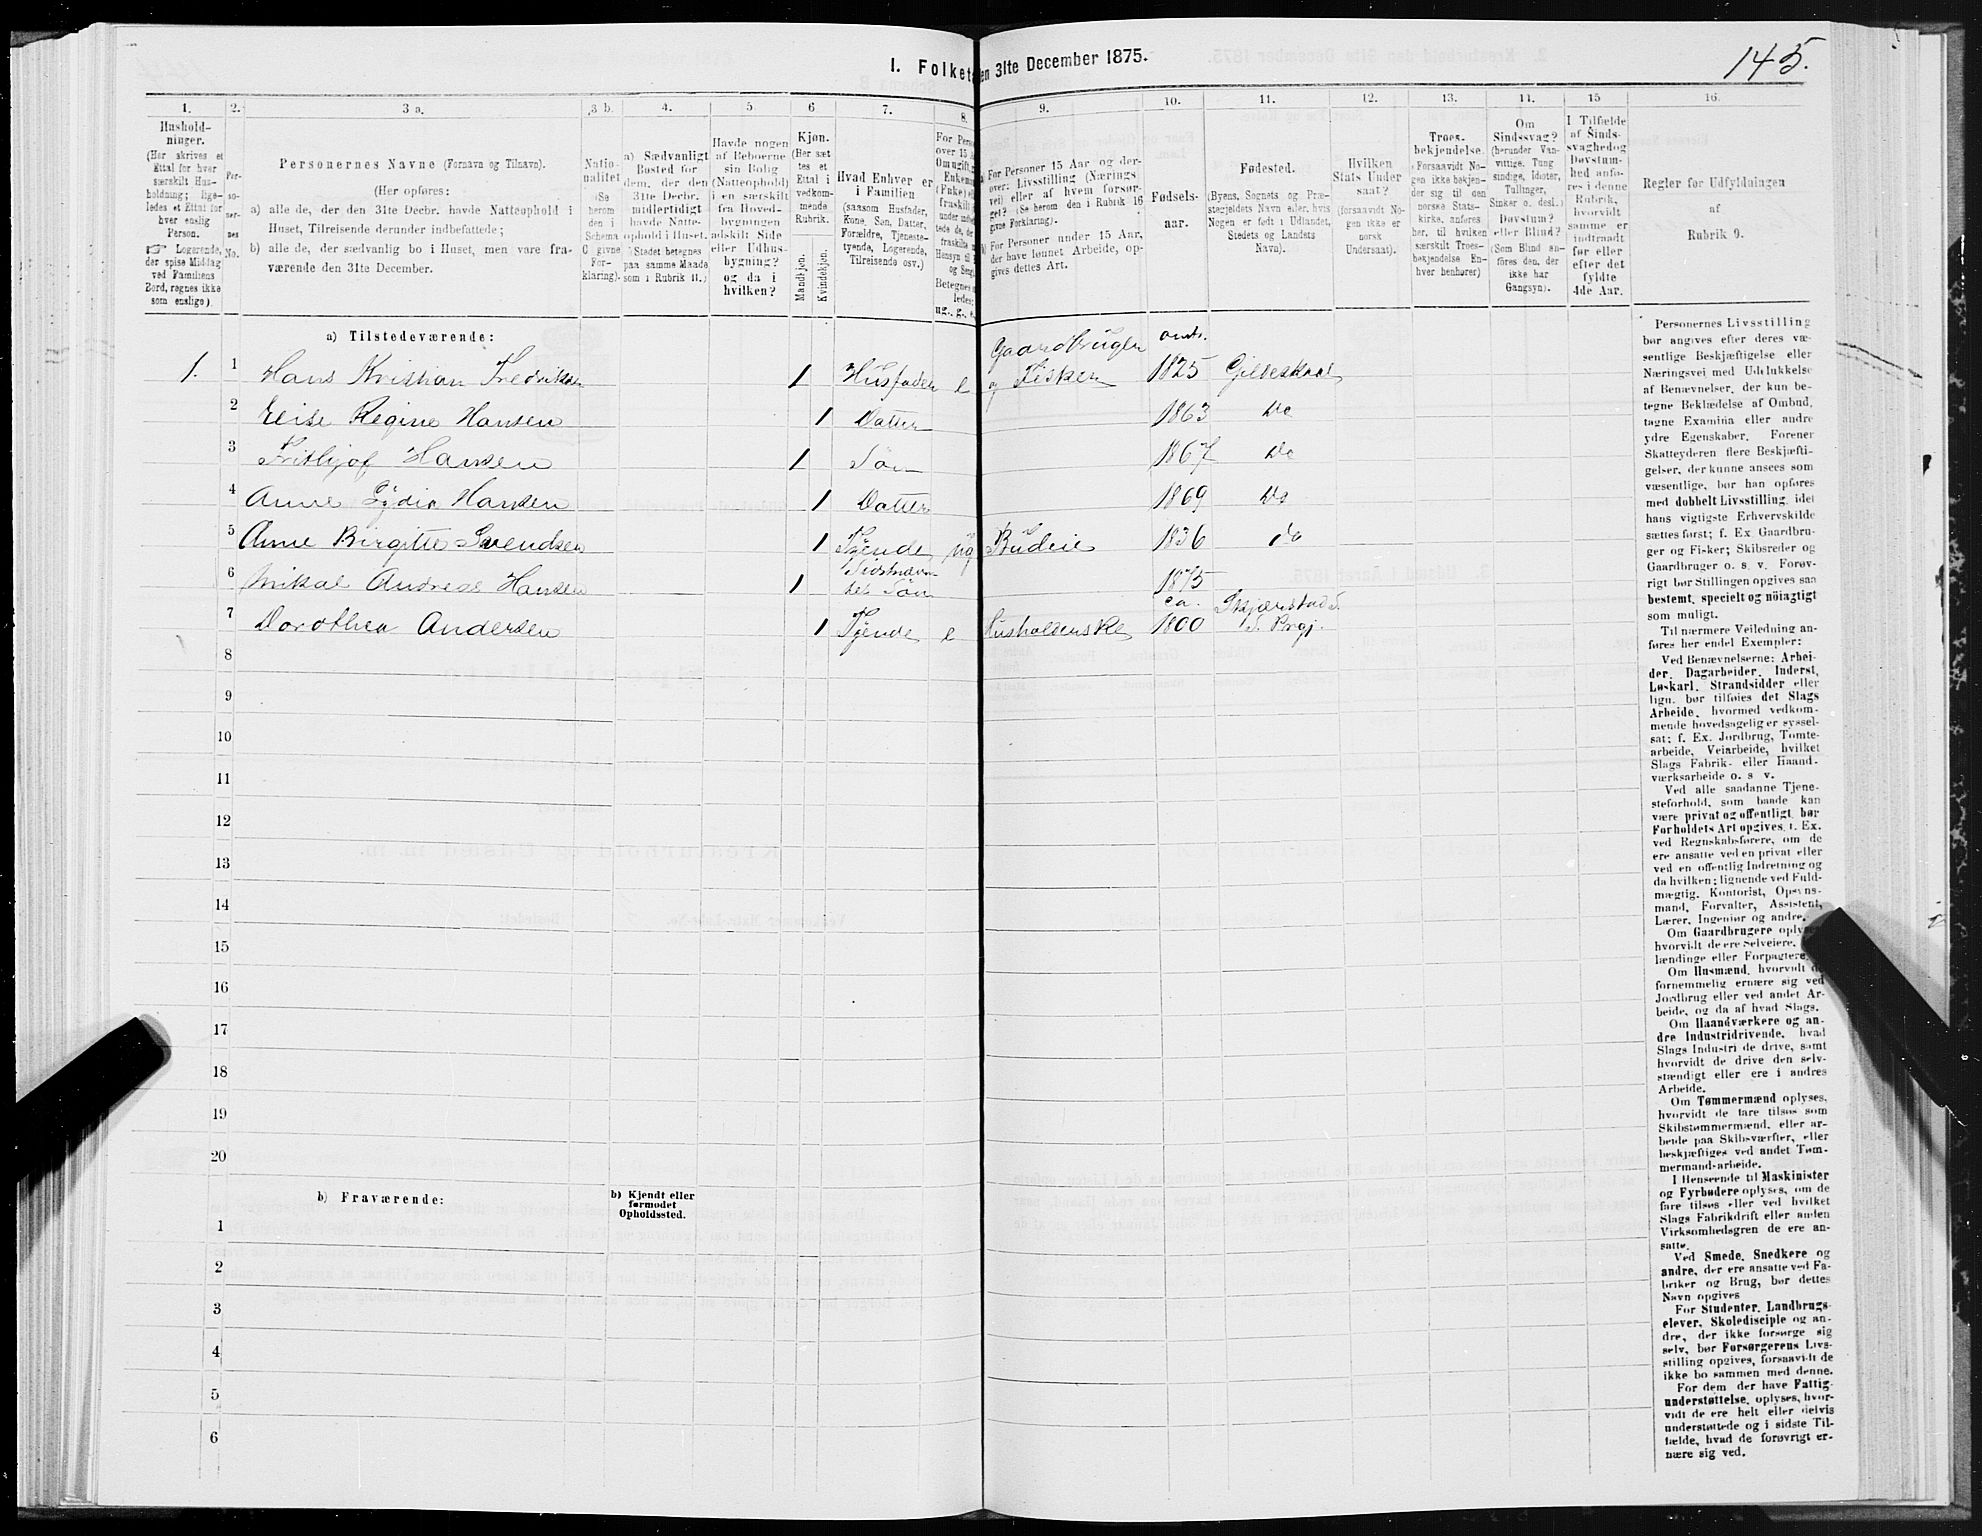 145.
I. Folket
en 31te December 1875.
1.
2.
3 a.
3 b.
4.
5.
6
7.
8.
9.
10.
11.
12.
13.
14.
15
16.
Hushold-
ninger.
(Her skrives et
Ettal for hver
særskilt Hus-
holdning; lige-
ledes et Ettal for
hver enslig
Person.
☞ Logerende,
der spise Middag
ved Familiens
Bord, regnes ikke
som enslige).
Per-
so-
ner-
nes
No.
Personernes Navne (Fornavn og Tilnavn).
(Her opføres:
a) alle de, der den 31te Decbr. havde Natteophold i
Huset, Tilreisende derunder indbefattede;
b) alle de, der sædvanlig bo i Huset, men vare fra-
værende den 31te December.
Natio-
nalitet
(Se
herom
den i
Schema
C givne
For-
klaring).
a) Sædvanligt
Bosted for
dem, der den
31te Decbr.
midlertidigt
havde Natte-
ophold i Huset.
(Stedet betegnes
paa samme Maade
som i Rubrik 11.)
Havde nogen
af Beboerne
sin Bolig
(Natteophold)
i en særskilt
fra Hoved-
bygningen
adskilt Side
eller Udhus-
bygning?
og da i
hvilken?
Kjøn.
(Her sæt
tes et
Ettal i
vedkom-
mende
Rubrik.
Mandkjøn.
Kvindekjøn.
Hvad Enhver er
i Familien
(saasom Husfader,
Kone, Søn, Datter,
Forældre, Tjeneste-
tyende, Logerende,
Tilreisende osv.)
For Perso
over 15 A
Om ugift,
Enkema
(Enke) el
fraskilt
ug., g., e.
a) For Personer 15 Aar og der-
over: Livsstilling (Nærings
vei) eller af hvem forsør-
get? (Se herom den i Rubrik 16
givne Forklaring).
b) For Personer under 15 Aar,
der have lønnet Arbeide, op-
gives dettes Art.
Fødsels-
aar.
Fødested.
(Byens, Sognets og Præ-
stegjeldets Navn eller, hvis
Nogen er født i Udlandet,
Stedets og Landets
Navn).
Hvilken
Stats Under
saat?
(forsaavidt No-
gen ikke er
norsk
Undersaat).
Troes-
bekjendelse.
(Forsaavidt No-
gen ikke bekjen-
der sig til den
norske Stats-
kirke, anføres
her, til hvilken
særskilt Troes-
bekjendelse En-
hver henhører)
Om
Sindssvag?
(herunder Van-
vittige, Tung
sindige, Idioter,
Tullinger,
Sinker o. desl.)
Døvstum?
eller Blind?
(Som Blind an-
føres den, der
ikke har
Gangsyn).
I Tilfælde
af Sinds-
svaghed og
Døvstum-
hed anfø-
res i denne
Rubrik,
hvorvidt
samme er
indtraadt
før eller
efter det
fyldte
4de Aar.
Regler for Udfyldningen
af
Rubrik 9.
a) Tilstedeværende:
1. 1 Hans Kristian Fredriksen 1 Husfader e Gaardbruger og Fisker omtr. 1825 Gildeskaal
2 Elise Regine Hansen 1 Datter 1863 Do
3 Frithjof Hansen 1 Søn 1867 Do
4 Anne Lydia Hansen 1 Datter 1869 Do
5 Anne Birgitte Svendsen 1 Tjende ug Budeie 1836 do
6 Mikal Andreas Hansen 1 Søn 1875
7 Dorothea Andersen 1 Tjende e Husholderske ca. 1800 Skjerstad S. S. Prgj.
8
9
10
11
12
13
14
15
16
17
18
19
20
b) Fraværende:
b) Kjendt eller
formodet
Opholdssted.
1
2
3
4
5
6
Personernes Livsstilling
bør angives efter deres væ-
sentlige Beskjæftigelse eller
Næringsvei med Udelukkelse
af Benævnelser, der kun be-
tegne Beklædelse af Ombud,
tagne Examina eller andre
ydre Egenskaber. Forener
Skatteyderen flere Beskjæfti-
gelser, der kunne ansees som
væsentlige, bør han opføres
med dobbelt Livsstilling, idet
hans vigtigste Erhvervskilde
sættes først; f. Ex. Gaardbru-
ger og Fisker; Skibsreder og
Gaardbruger o. s. v. Forøv-
rigt bør Stillingen opgives saa
bestemt, specielt og nøiagtigt
som muligt.
Til nærmere Veiledning an-
føres her endel Exempler:
Ved Benævnelserne: Arbei-
der, Dagarbeider, Inderst,
Løskarl, Strandsidder eller
lign. bør tilføies det Slags
Arbeide, hvormed vedkom-
mende hovedsagelig er syssel-
sat; f. Ex. Jordbrug, Tomte-
arbeide, Veiarbeide, hvilket
Slags Fabrik- eller Haand-
værksarbeide o. s v.
Ved alle saadanne Tjene-
steforhold, som baade kan
være privat og offentligt, bør
Forholdets Art opgives, f. Ex.
ved Regnskabsførere, om de
ere ansatte ved en privat eller
ved en offentlig Indretning og
da hvilken; lignende ved Fuld-
mægtig, Kontorist, Opsyns-
mand, Forvalter, Assistent,
Lærer, Ingeniør og andre.
Om Gaardbrugere oplyses
hvorvidt de ere Selveiere,
lændinge eller Forpagtere.
Om Husmænd, hvorvidt de
fornemmelig ernære sig ved
Jordbrug eller ved andet Ar-
beide, og da af hvad Slags.
Om Haandværkere og an-
dre Industridrivende, hvad
Slags Industri de drive, samt
hvorvidt de drive den selv-
stændigt eller ere i andres
Arbeide.
Om Tømmermænd oplyses,
hvorvidt de fare tilsøs som
Skibstømmermænd, eller ar-
beide paa Skibsværfter, eller
beskjæftiges ved andet Tøm-
mermandsarbeide.
I Henseende til Maskinister
og Fyrbødere oplyses, om de
fare tilsøs eller ved hvilket
Slags Fabrikdrift eller anden
Virksomhedsgren de ere an-
satte.
Ved Smede, Snedkere og
andre, der ere ansatte ved Fa-
briker og Brug, bør dettes
Navn opgives
For Studenter, Landbrugs-
elever, Skoledisciple og an-
dre, der ikke forsørge sig
selv, bør Forsørgerens Livs-
stilling opgives, forsaavidt de
ikke bo sammen med denne.
For dem der have Fattig-
understøttelse, oplyses, hvor-
vidt de ere helt eller delvis
understøttede og i sidste Til-
fælde, hvad de forøvrigt er-
nære sig ved.